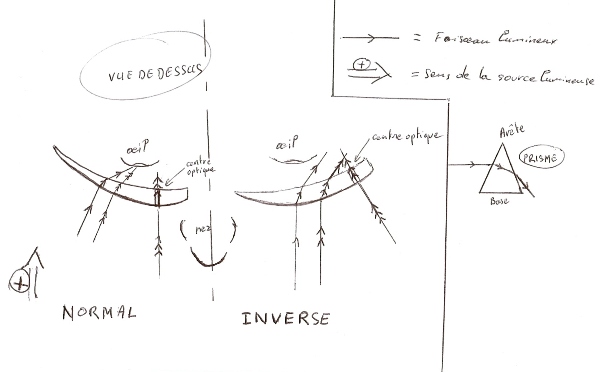 VUE DE DESSUS
= Faisceau lumineux
+
= sens de la source lumineuse
oeil
centre
optique
oeil
centre optique
Arête
PRISME
Base
nez
+
NORMAL
INVERSE